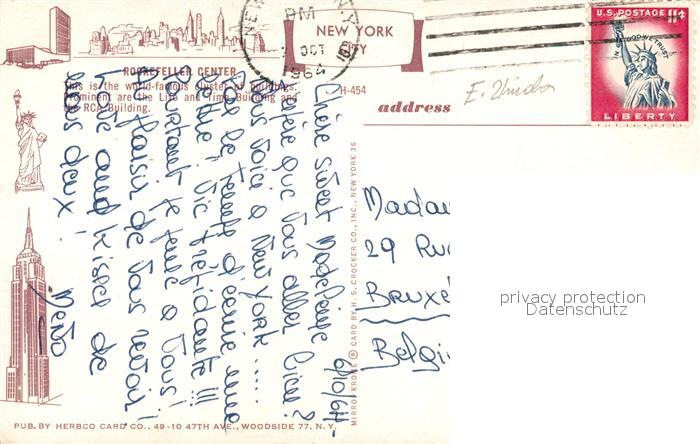 NEW YORK
CITY
NEW
N.Y.
PM
OCT
1964
U.S. POSTAGE 11¢
IN GOD WE TRUST
LIBERTY
ROCKEFELLER CENTER
This is the world-famous cluster of buildings.
Prominent are the Life and Time Building and
the RCA Building.
H-454
address
6/10/64
Chère sweet Madeleine
J'espère que vous allez bien?
Nous voici à New York.....
Pas le temps d'écrire une
lettre, vie trépidante!!!
Pourtant je pense à vous!
Au plaisir de vous revoir!
Love and kisses de
nous deux!
MIRRO-KROME ® CARD BY H. S. CROCKER CO., INC., NEW YORK 36
Madam
29 Rue
Bruxe
Belgi
privacy protection
Datenschutz
PUB. BY HERBCO CARD CO., 49-10 47TH AVE., WOODSIDE 77, N.Y.